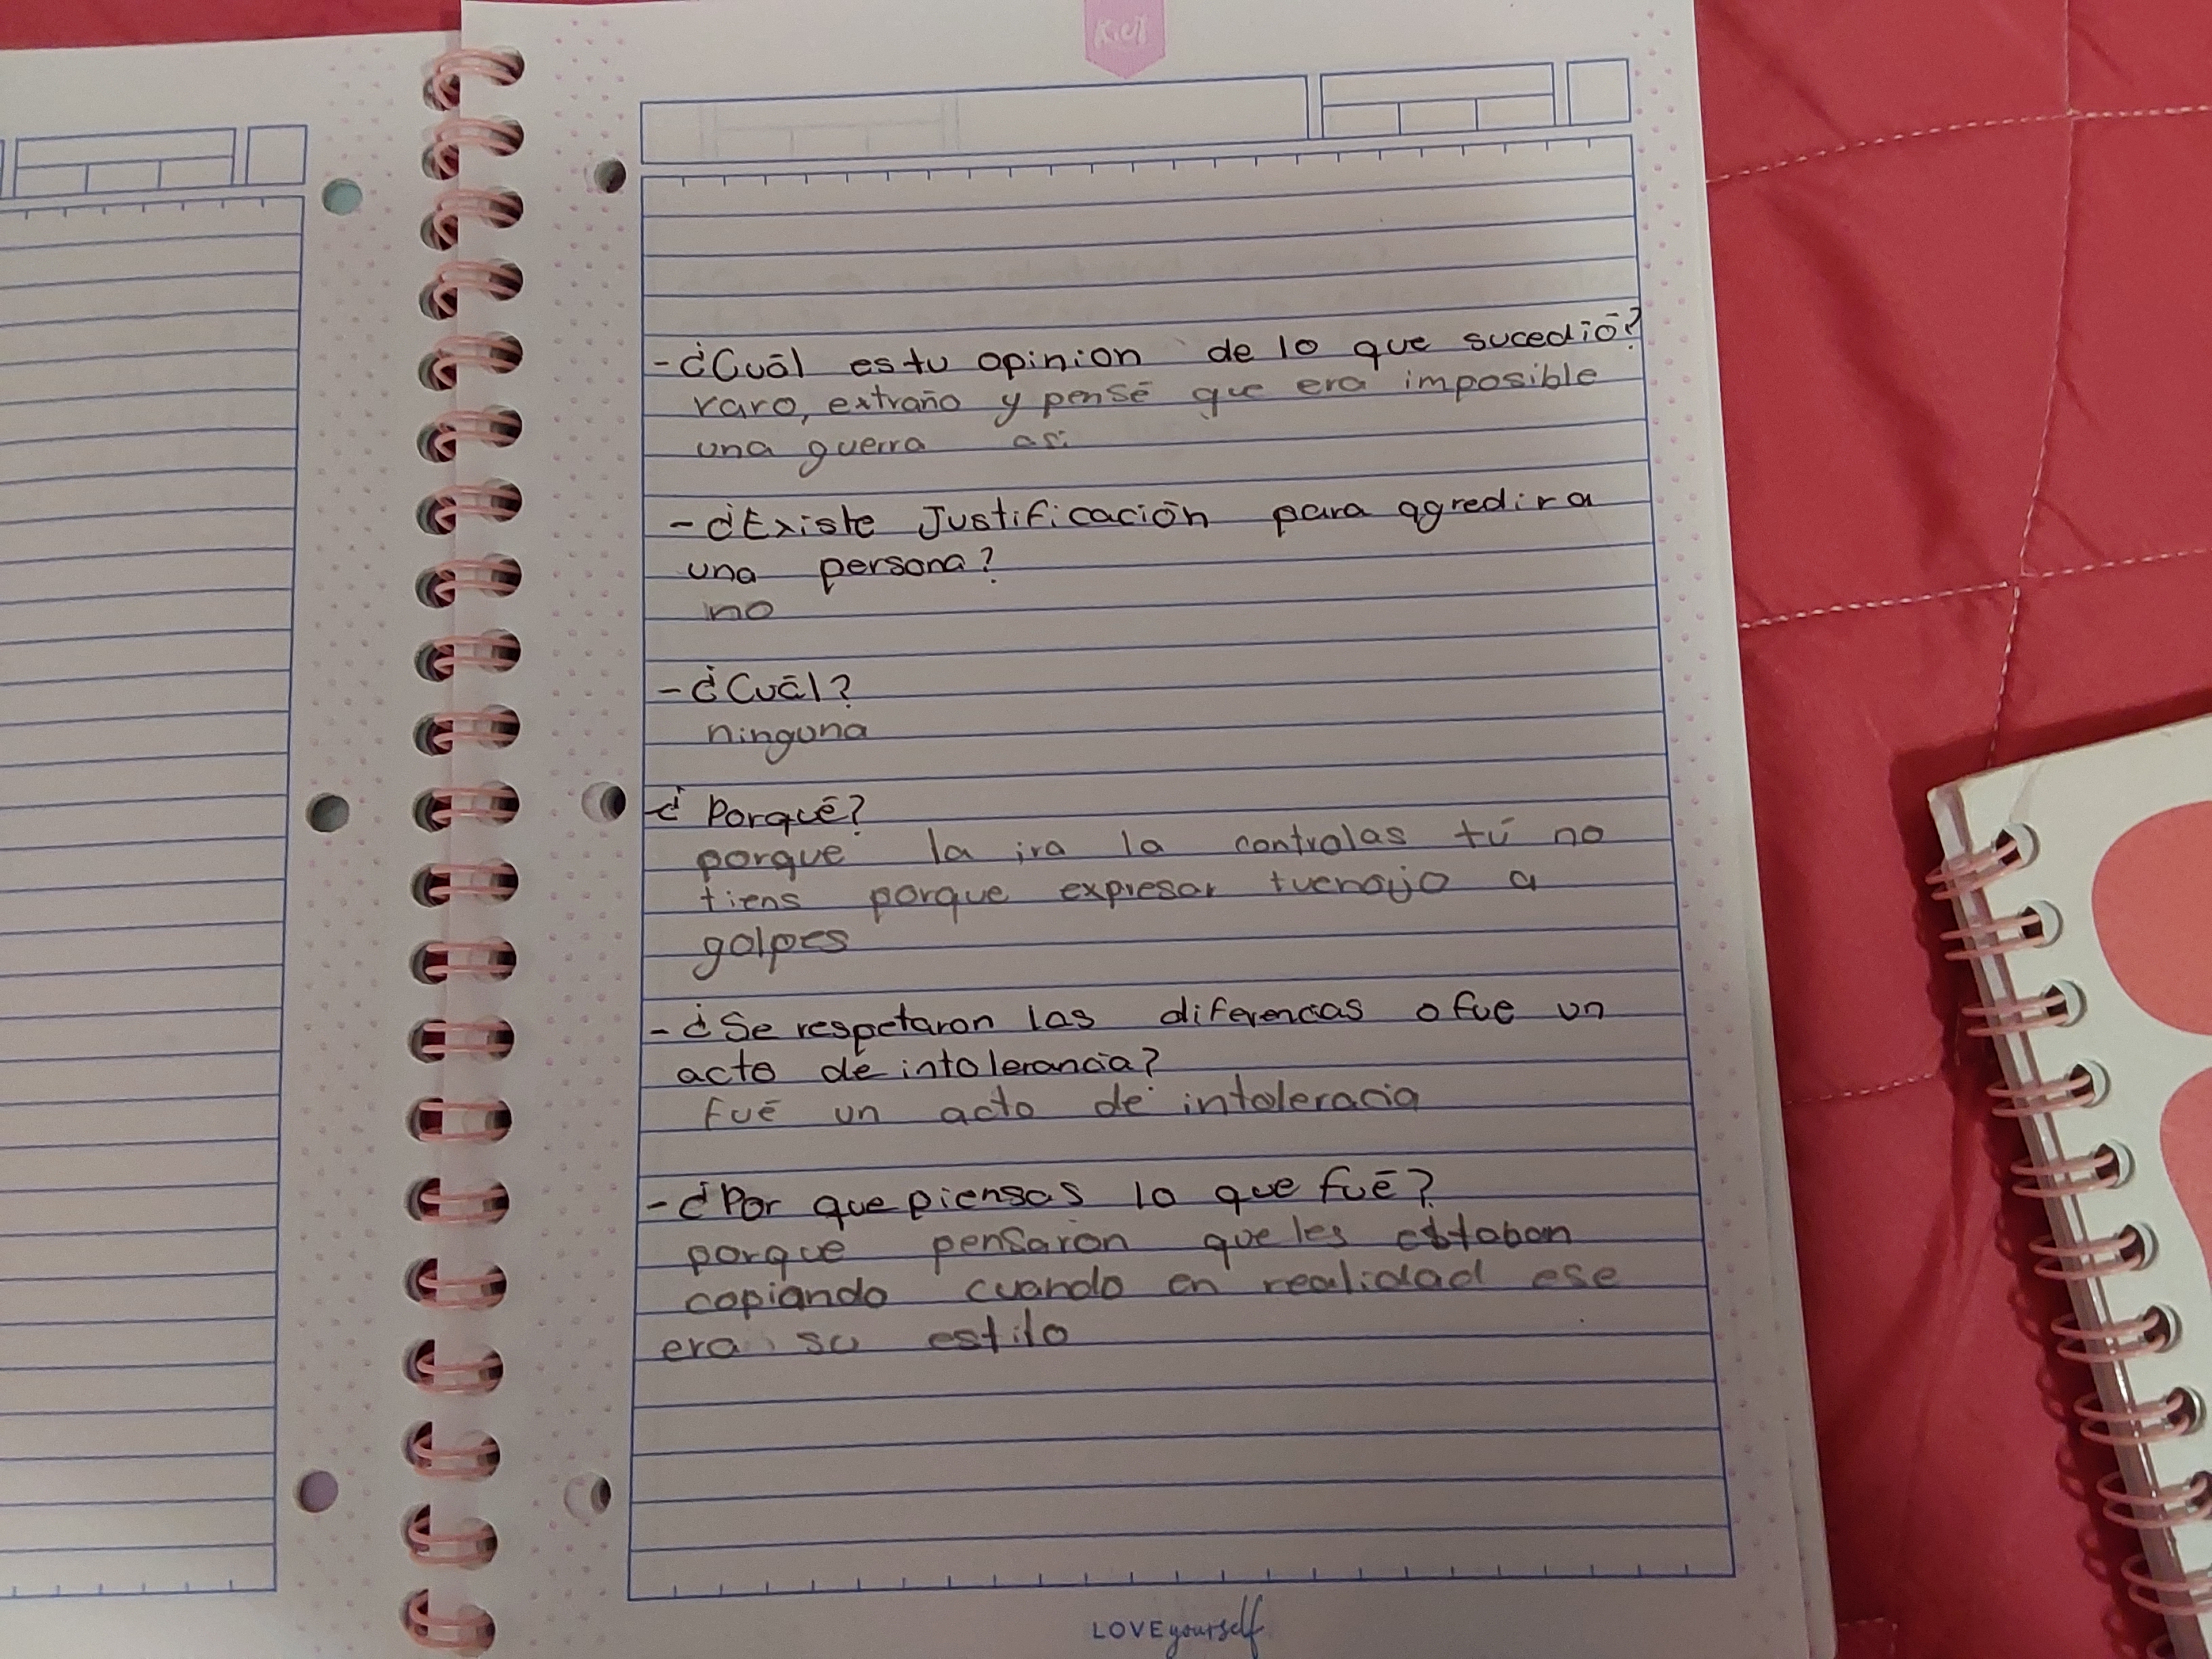 Kiut
-¿Cuál es tu opinion de lo que sucedió?
raro, extraño y pensé que era imposible
una guerra asi
-¿Existe Justificación para agredir a
una persona?
no
-¿Cuál?
ninguna
¿Porqué?
porque la ira la controlas tú no
tiens porque expresar tu enojo a
golpes
-¿Se respetaron las diferencias o fue un
acto de intolerancia?
fué un acto de intoleracia
-¿Por que piensas lo que fué?
porque pensaron que les estaban
copiando cuando en realidad ese
era su estilo
LOVE yourself